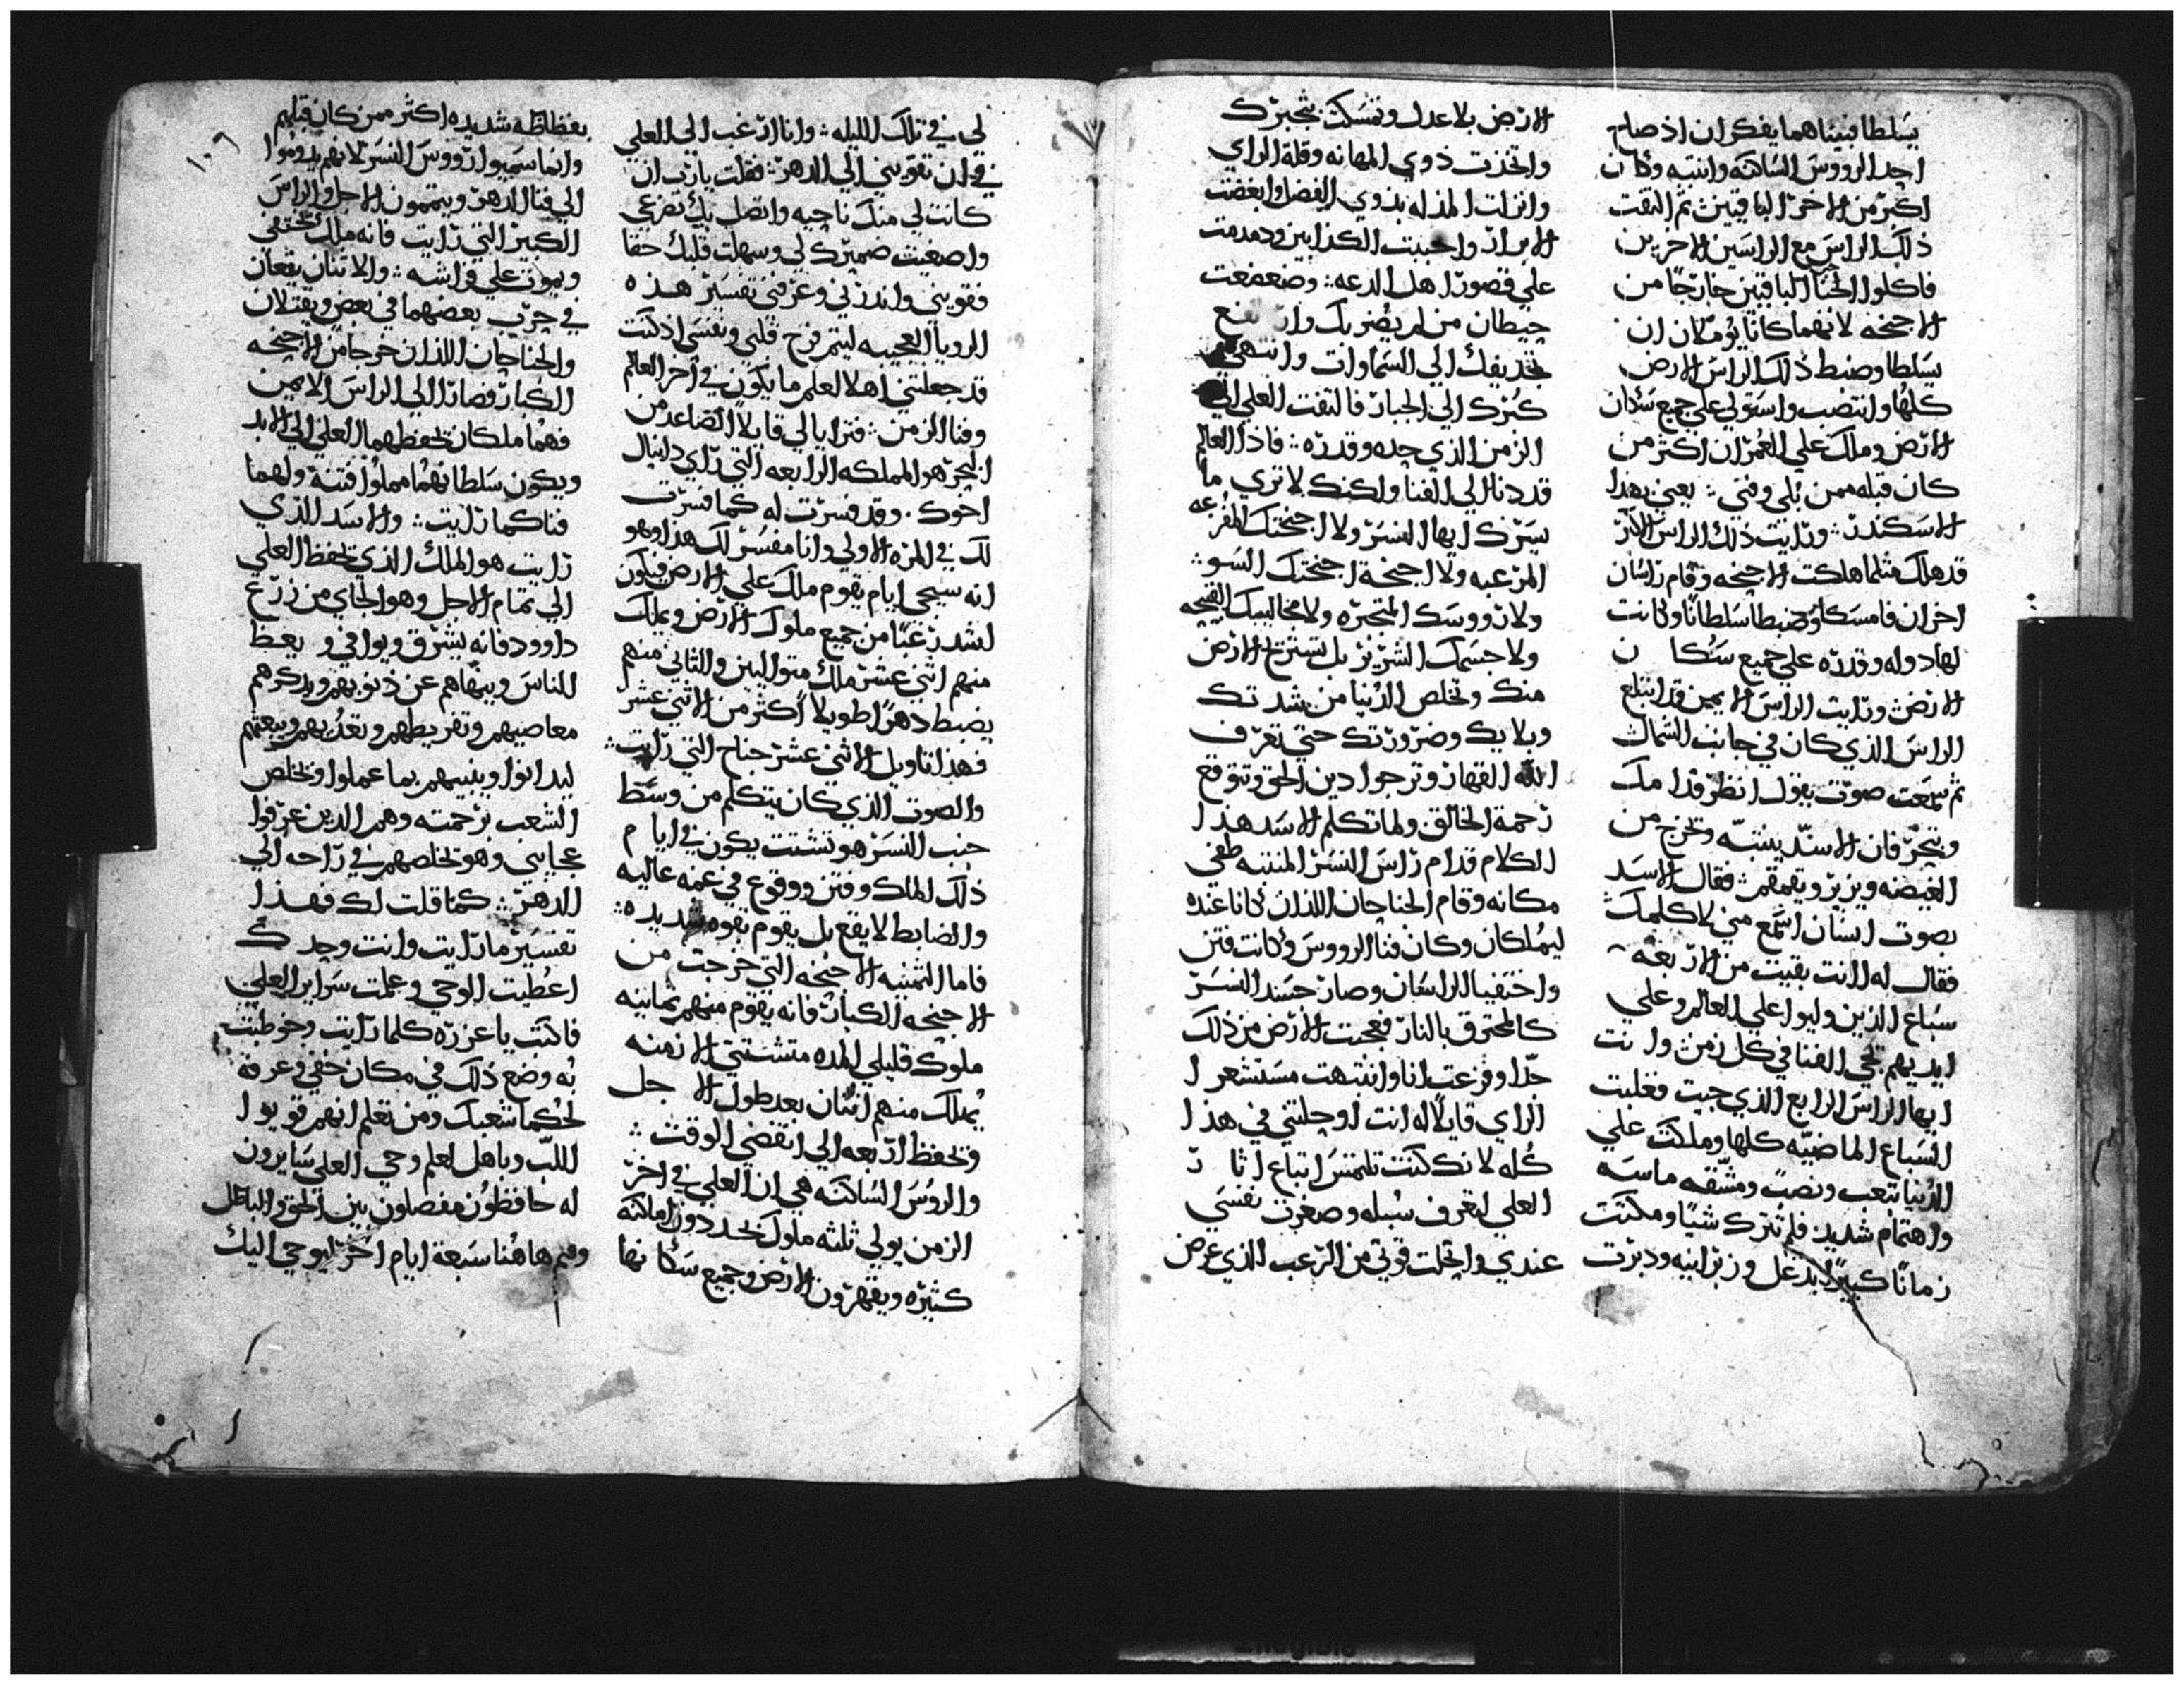 يسلطا فبيناهما يفكران اذ صاح
احد الرووس الساكته وانتبه وكان
اكبر من الاخر الباقيين ثم التفت
ذلك الراس مع الراسين الاخرين
فاكلوا الجناحا الباقيين خارجا من
الاجنحه لانهما كانا يوملان ان
يسلطا وضبط ذلك الراس الارض
كلها وانتصب واستولي علي جميع سكان
الارض وملك علي العمران اكثر من
كان قبله ممن بلي وفني يعني بهذا
الاسكندر ورايت ذلك الراس الاكبر
قد هلك مثلما هلكت الاجنحه وقام راسان
اخران فامسكا وضبطا سلطانا وكانت
لها دوله وقدره علي جميع سكا ن
الارض ورايت الراس الايمن قد ابتلع
الراس الذي كان في جانب الشمال
ثم سمعت صوت يقول انظر قدامك
وتبحر فان الاسد ينتبه وتخرج من
الغيضه ويزير ويقمقم فقال الاسد
بصوت انسان اسمع مني لاكلمك
فقال له انت بقيت من الاربعه
سباع الذين وليوا علي العالم وعلي
ايديهم يجي الفنا في كل زمن وانت
ايها الراس الرابع الذي جيت فغلبت
السباع الماضيه كلها وملكت علي
الدنيا بتعب ونصب ومشقه ماسه
واهتمام شديد فلم تترك شيا ومكثت
زمانا كبيرا بدغل وزبرانيه ودبرت
الارض بلا عدل وتمسكت بتجبرك
واتخذت ذوي المهانه وقلة الراي
وانزلت المذله بذوي الفضل وابغضت
الابرار واحببت الكذابين ودمدمت
علي قصور اهل الدعه وضعضعت
حيطان من لم يضر بك وارتفع
تجديفك الي السماوات وانتهي
كبرك الي الجبار فالتفت العلي الي
الزمن الذي حده وقدره فاذا العالم
قد دنا الي الفنا ولكنك لا تري ما
يسرك ايها النسر ولا اجنحتك المفزعه
المرعبه ولا اجنحة اجنحتك السو
ولا رووسك المتجبره ولا مخاليبك القبيحه
ولا جسمك الشرير بل تستريح الارض
منك وتخلص الدنيا من شدتك
وبلايك وضرورتك حتي تعرف
الله القهار وترجوا دين الحق وتتوقع
رحمة الخالق ولما تكلم الاسد هذا
الكلام قدام راس النسر المنتبه طفي
مكانه وقام الجناحان اللذان كانا عنده
ليملكان وكان فنا الرووس وكانت فتن
واختفيا الراسان وصار جسد النسر
كالمحترق بالنار فعجبت الارض من ذلك
جدا وفزعت انا وانتبهت مستشعرا
الراي قايلا له انت اوجلتني في هذا
كله لانك كنت تلتمس اتباع اثا ر
العلي لتعرف سبله وصغرت نفسي
عندي وانحلت قوتي من الرعب الذي عرض
لي في تلك الليله وانا ارغب الي العلي
في ان تقويني الي الدهر فقلت يارب ان
كانت لي منك ناجيه واتصل بك تضرعي
واصغيت ضميرك لي وسهلت قلبك حقا
فقويني وانذرني وعرفني تفسير هذه
الرويا العجيبه ليتم فرح قلبي ونفسي اذ كنت
قد جعلتني اهلا لعلم ما يكون في اخر العالم
وفنا الزمن فترايا لي قايلا الصاعد من
البحر هو المملكه الرابعه التي راي دانيال
اخوك وقد فسرت له كما فسرت
لك في المره الاولي وانا مفسر لك هذا وهو
انه سيجي ايام يقوم ملك علي الارض فيكون
اشد رعبا من جميع ملوك الارض ويملك
منهم اثني عشر ملك متواليين والثاني منهم
يضبط دهرا طويلا اكثر من الاثني عشر
فهذا تاويل الاثني عشر جناح التي رايت
والصوت الذي كان يتكلم من وسط
جنب النسر هو تشتت يكون في ايام
ذلك الملك وفتن ووقوع في غمه عاليه
والضابط لا يقع بل يقوم بقوه شديده
فاما الثمنيه الاجنحه التي خرجت من
الاجنحه الكبار فانه يقوم منهم ثمانيه
ملوك قليلي المده متشتتي الازمنه
يملك منهم اثنان بعد طول الاجل
وتحفظ اربعه الي انقضي الوقت
والروس الساكته هي ان العلي في اخر
الزمن يولي ثلثه ملوك يجددون اماكنه
كثيره ويقهرون الارض وجميع سكانها
بفظاظه شديده اكثر ممن كان قبلهم
وانما سميوا رووس النسر لانهم يدوموا
الي فنا الدهر ويتممون الاجل والراس
الكبير التي رايت فانه ملك يختفي
ويموت علي فراشه والاثنان يقعان
في حرب بعضهما في بعض ويقتلان
والجناحان اللذان خرجا من الاجنحه
الكبار فصارا الي الراس الايمن
فهما ملكان يحفظهما العلي الي الابد
ويكون سلطانهما مملوا فتنة ولهما
فنا كما رايت والاسد الذي
رايت هو الملك الذي يحفظ العلي
الي تمام الاجل وهو الجاي من زرع
داوود فانه يشرق ويوافي ويعظ
الناس وينهاهم عن ذنوبهم ويذكرهم
معاصيهم وتفريطهم وتعديهم ويبعثهم
ليدانوا وينبيهم بما عملوا ويخلص
الشعب برحمته وهم الذين عرفوا
عجايبي وهو يخلصهم في راحه الي
الدهر كما قلت لك فهذا
تفسير ما رايت وانت وحدك
اعطيت الوحي وعلمت سراير العلي
فاكتب ياعزره كلما رايت وخوطبت
به وضع ذلك في مكان خفي وعرفه
لحكما شعبك ومن تعلم انهم قويوا
اللب وباهل لعلم وحي العلي سايرون
له حافظون مفصلون بين الحق والباطل
وقم هاهنا سبعة ايام اخر ليوحي اليك
١٠٩